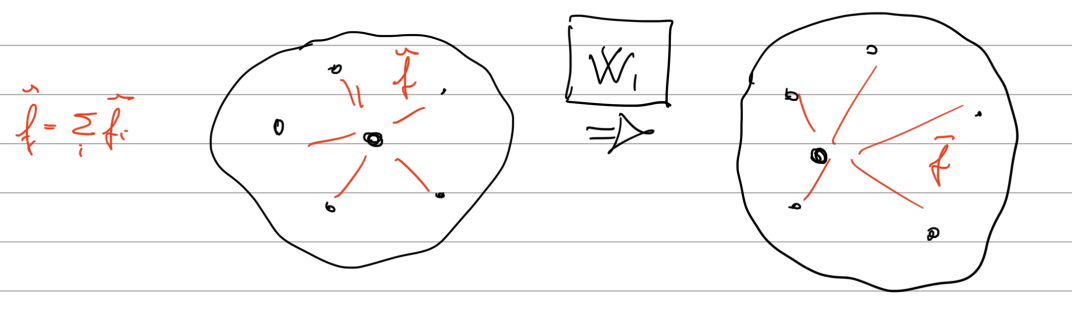 f̃ = Σ_i f̃_i
f̃
W_1
⇒
f̃